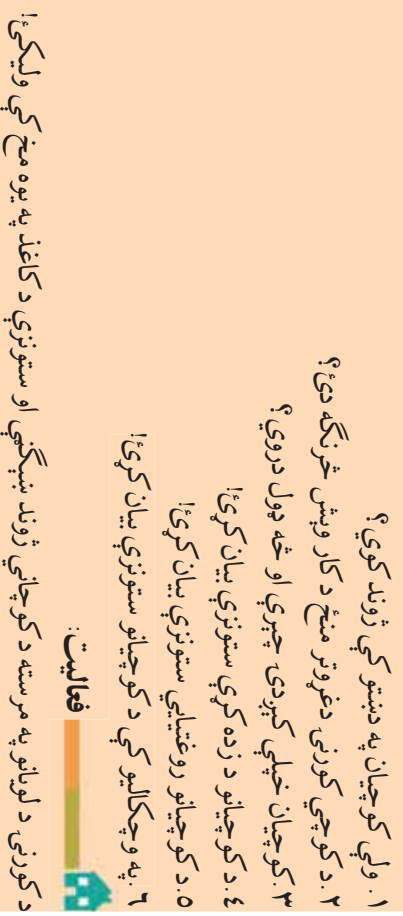 ۱. ولي کوچیان په دښتو کي ژوند کوي؟
۲. د کوچي کورنۍ دغړو تر منځ د کار وېش څرنګه دئ؟
۳. کوچیان خپلي کېږدۍ چېري او څه ډول دروي؟
٤. د کوچیانو د زده کړي ستونزي بیان کړئ!
٥. د کوچیانو روغتیایي ستونزي بیان کړئ!
٦. په وچکالیو کي د کوچیانو ستونزي بیان کړئ!
فعالیت:
د کورنۍ د لویانو په مرسته د کوچیاني ژوند ښېګڼي او ستونزي د کاغذ په یوه مخ کي ولیکئ!